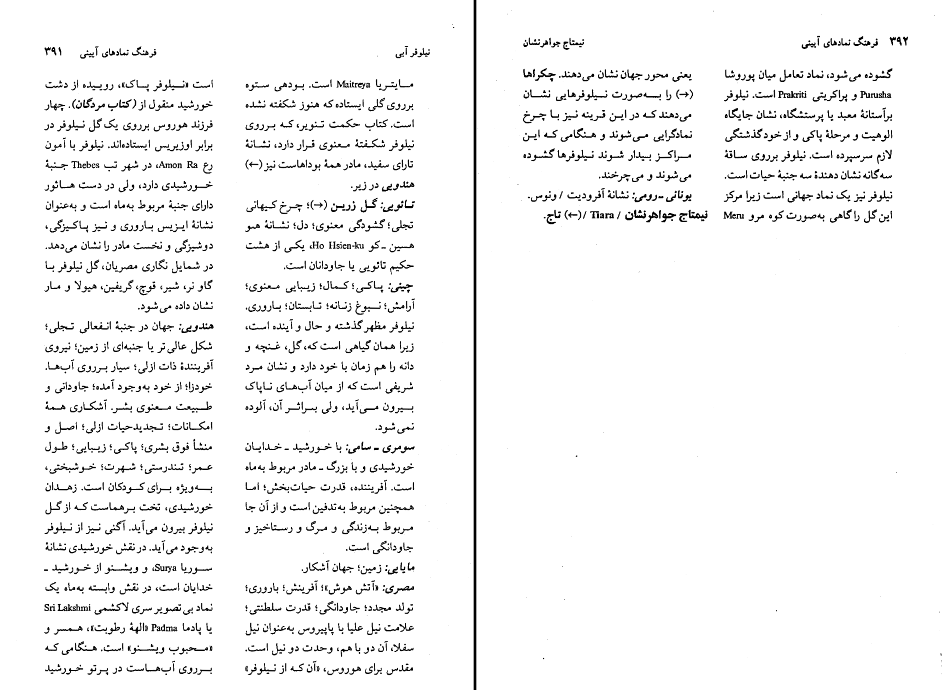 نیلوفر آبی
فرهنگ نمادهای آیینی ۳۹۱
مایتریا Maitreya است. بودهی ستوه
برروی گلی ایستاده که هنوز شکفته نشده
است. کتاب حکمت تنویر، که برروی
نیلوفر شکفتهٔ معنوی قرار دارد، نشانهٔ
تارای سفید، مادر همهٔ بوداهاست نیز (←)
هندویی در زیر.
تائویی: گل زرین (→)؛ چرخ کیهانی
تجلی؛ گشودگی معنوی؛ دل؛ نشانهٔ هو
هسین ـ کو Ho Hsien-ku، یکی از هشت
حکیم تائویی یا جاودانان است.
چینی: پاکی؛ کمال؛ زیبایی معنوی؛
آرامش؛ نبوغ زنانه؛ تابستان؛ باروری.
نیلوفر مظهر گذشته و حال و آینده است،
زیرا همان گیاهی است که، گل، غنچه و
دانه را هم زمان با خود دارد و نشان مرد
شریفی است که از میان آب‌های ناپاک
بیرون می‌آید، ولی براثر آن، آلوده
نمی‌شود.
سومری ـ سامی: با خورشید ـ خدایان
خورشیدی و با بزرگ ـ مادر مربوط به‌ماه
است. آفریننده، قدرت حیات‌بخش؛ اما
همچنین مربوط به‌تدفین است و از آن جا
مربوط به‌زندگی و مرگ و رستاخیز و
جاودانگی است.
مایایی: زمین؛ جهان آشکار.
مصری: «آتش هوش»؛ آفرینش؛ باروری؛
تولد مجدد؛ جاودانگی؛ قدرت سلطنتی؛
علامت نیل علیا با پاپیروس به‌عنوان نیل
سفلا، آن دو با هم، وحدت دو نیل است.
مقدس برای هوروس، «آن که از نیلوفر»
است «نیلوفر پاک»، روییده از دشت
خورشید منقول از (کتاب مردگان). چهار
فرزند هوروس برروی یک گل نیلوفر در
برابر اوزیریس ایستاده‌اند. نیلوفر با آمون
رع Amon Ra، در شهر تب Thebes جنبهٔ
خورشیدی دارد، ولی در دست هاثور
دارای جنبهٔ مربوط به‌ماه است و به‌عنوان
نشانهٔ ایزیس باروری و نیز پاکیزگی،
دوشیزگی و نخست مادر را نشان می‌دهد.
در شمایل نگاری مصریان، گل نیلوفر با
گاو نر، شیر، قوچ، گریفین، هیولا و مار
نشان داده می‌شود.
هندویی: جهان در جنبهٔ انفعالی تجلی؛
شکل عالی‌تر یا جنبه‌ای از زمین؛ نیروی
آفرینندهٔ ذات ازلی؛ سیار برروی آب‌ها.
خودزا؛ از خود به‌وجود آمده؛ جاودانی و
طبیعت معنوی بشر. آشکاری همهٔ
امکانات؛ تجدیدحیات ازلی؛ اصل و
منشأ فوق بشری؛ پاکی؛ زیبایی؛ طول
عمر؛ تندرستی؛ شهرت؛ خوشبختی،
به‌ویژه برای کودکان است. زهدان
خورشیدی، تخت برهماست که از گل
نیلوفر بیرون می‌آید. آگنی نیز از نیلوفر
به‌وجود می‌آید. در نقش خورشیدی نشانهٔ
سوریا Surya، و ویشنو از خورشید ـ
خدایان است، در نقش وابسته به‌ماه یک
نماد بی‌تصویر سری لاکشمی Sri Lakshmi
یا پادما Padma «الههٔ رطوبت»، همسر و
«محبوب ویشنو» است. هنگامی که
برروی آب‌هاست در پرتو خورشید
۳۹۲ فرهنگ نمادهای آیینی
نیمتاج جواهرنشان
گشوده می‌شود، نماد تعامل میان پوروشا
Purusha و پراکریتی Prakriti است. نیلوفر
برآستانهٔ معبد یا پرستشگاه، نشان جایگاه
الوهیت و مرحلهٔ پاکی و از خودگذشتگی
لازم سرسپرده است. نیلوفر برروی ساقهٔ
سه‌گانه نشان دهندهٔ سه جنبهٔ حیات است.
نیلوفر نیز یک نماد جهانی است زیرا مرکز
این گل را گاهی به‌صورت کوه مرو Meru
یعنی محور جهان نشان می‌دهند. چکراها
(→) را به‌صورت نیلوفرهایی نشان
می‌دهند که در این قرینه نیز با چرخ
نمادگرایی می‌شوند و هنگامی که این
مراکز بیدار شوند نیلوفرها گشوده
می‌شوند و می‌چرخند.
یونانی ـ رومی: نشانهٔ آفرودیت / ونوس.
نیمتاج جواهرنشان / Tiara /(←) تاج.